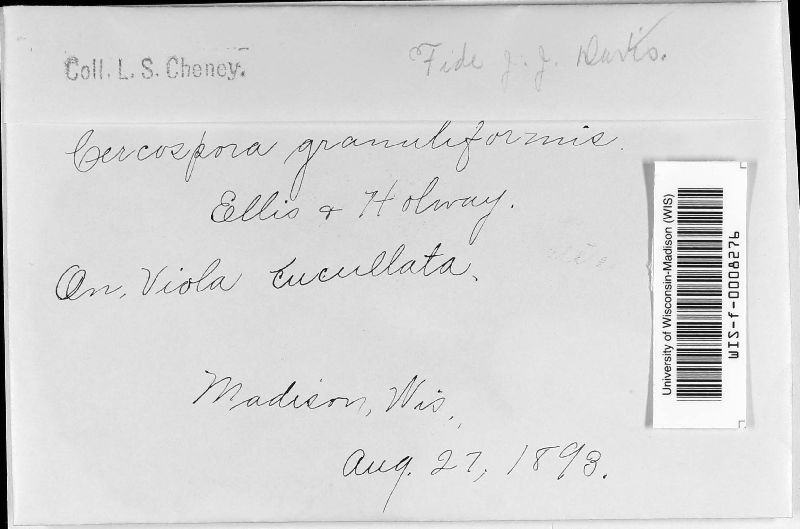 Coll. L. S. Cheney.
Fide J. J. Davis.
Cercospora granuliformis.
Ellis & Holway.
On, Viola cucullata.
Madison, Wis.,
Aug. 27, 1893.
University of Wisconsin-Madison (WIS)
WIS-f-0008276